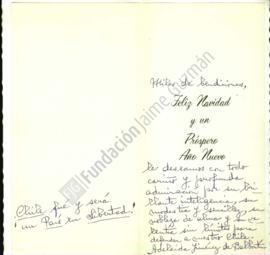 Miles de bendiciones,
Feliz Navidad
y un
Próspero
Año Nuevo
le deseamos con todo
cariño y profunda
admiración por su bri-
llante inteligencia, su
modestia y sencillez, su
nobleza de alma y su va-
lentía sin límites para
defender a nuestro Chile.
Adelaida Jiménez de
¡Chile fue y será
un País en Libertad!
Fundación Jaime Guzmán